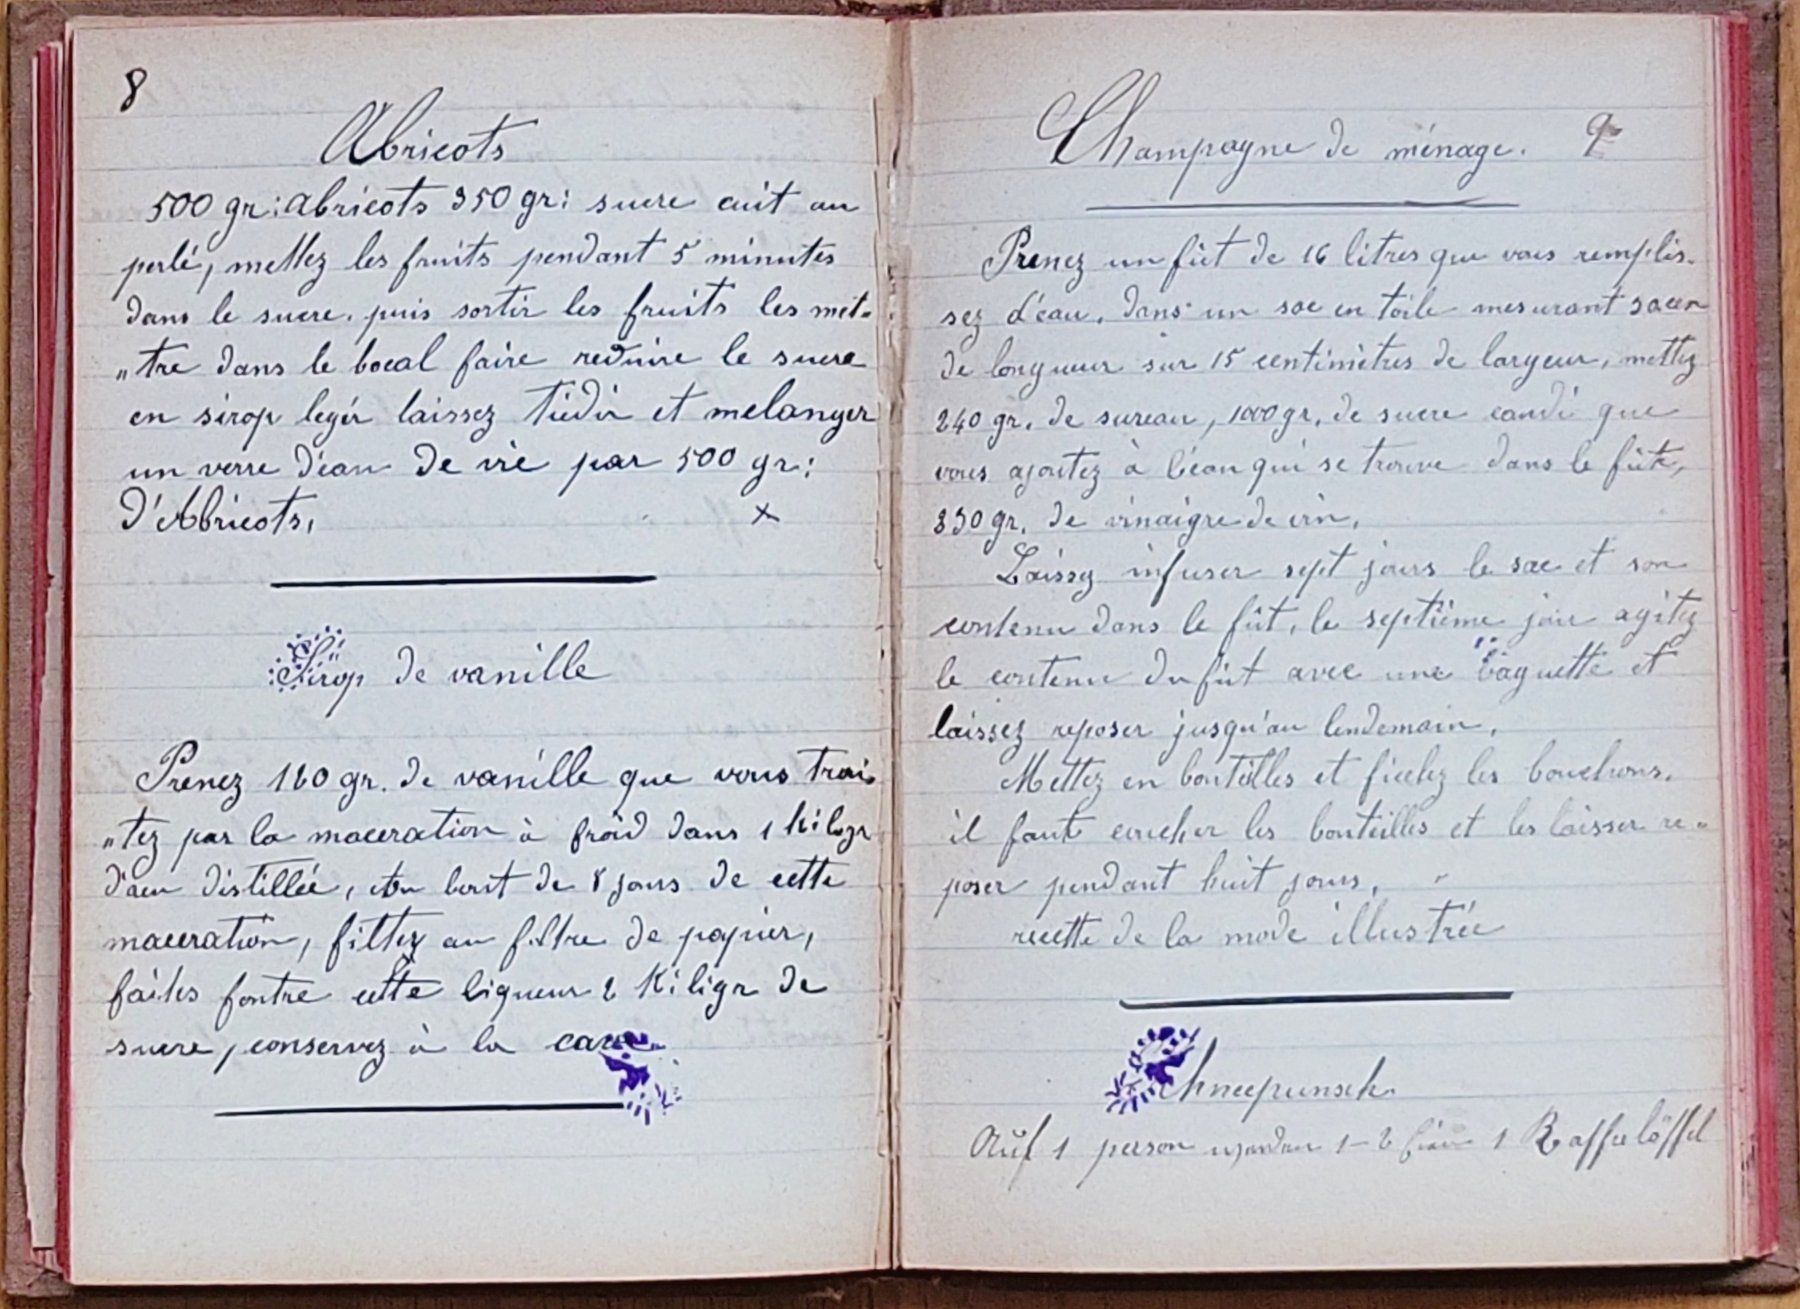 8
Abricots
500 gr: abricots 350 gr: sucre cuit au
perlé, mettez les fruits pendant 5 minutes
dans le sucre, puis sortir les fruits les met-
"tre dans le bocal faire reduire le sucre
en sirop legér laissez tiédir et melanger
un verre d'eau de vie par 500 gr:
d'Abricots, x
Sirop de vanille
Prenez 160 gr. de vanille que vous trai-
"tez par la maceration à froid dans 1 kilogr
d'aeu distillée, Au bout de 8 jours de cette
maceration, filtez au filtre de papier,
faites fontre cette liqueur 2 Kiligr de
sucre, conservez à la cave
Champagne de ménage. 9
Prenez un fût de 16 litres que vous remplis-
sez d'éau. Dans un sac en toile mesurant
de longueur sur 15 centimètres de largeur, mettez
240 gr. de sureau, 1000 gr. de sucre candi que
vous ajoutez à l'éau qui se trouve dans le fût,
850 gr. de vinaigre de vin.
Laissez infuser sept jours le sac et son
contenu dans le fût, le septième jour agitez
le contenu du fût avec une baguette et
laissez reposer jusqu'au lendemain.
Mettez en bouteilles et ficelez les bouchons.
il faut coucher les bouteilles et les laisser re-
poser pendant huit jours.
recette de la mode illustrée
Schneepunsch.
Auf 1 person werden 1-2 1 Kaffeelöffel